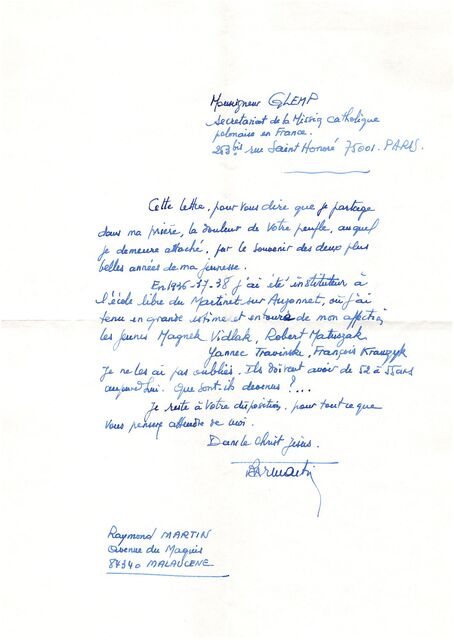 Monseigneur GLEMP
Secretariat de la Mission Catholique
polonaise en France.
263 bis rue Saint Honoré 75001. PARIS.
Cette lettre, pour vous dire que je partage
dans ma prière, la douleur de votre peuple, auquel
je demeure attaché, par le souvenir des deux plus
belles années de ma jeunesse.
En 1936-37-38 j'ai été instituteur à
l'école libre du Martinet sur Auzonnet, où j'ai
tenu en grande estime et entourés de mon affection
les jeunes Magnek Vidlak, Robert Matuszak
Yannec Travinski, François Krawzyk
Je ne les ai pas oubliés. Ils doivent avoir de 52 à 55 ans
aujourd'hui. Que sont-ils devenus ?...
Je reste à votre disposition, pour tout ce que
vous pensez attendre de moi.
Dans le Christ Jésus.
Raymond MARTIN
Avenue du Maquis
84340 MALAUCENE